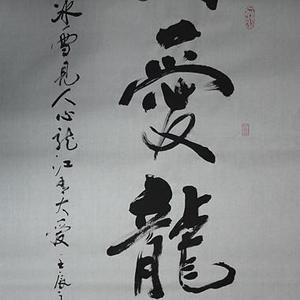 愛龍
冰雪見人心龍江有大愛壬辰